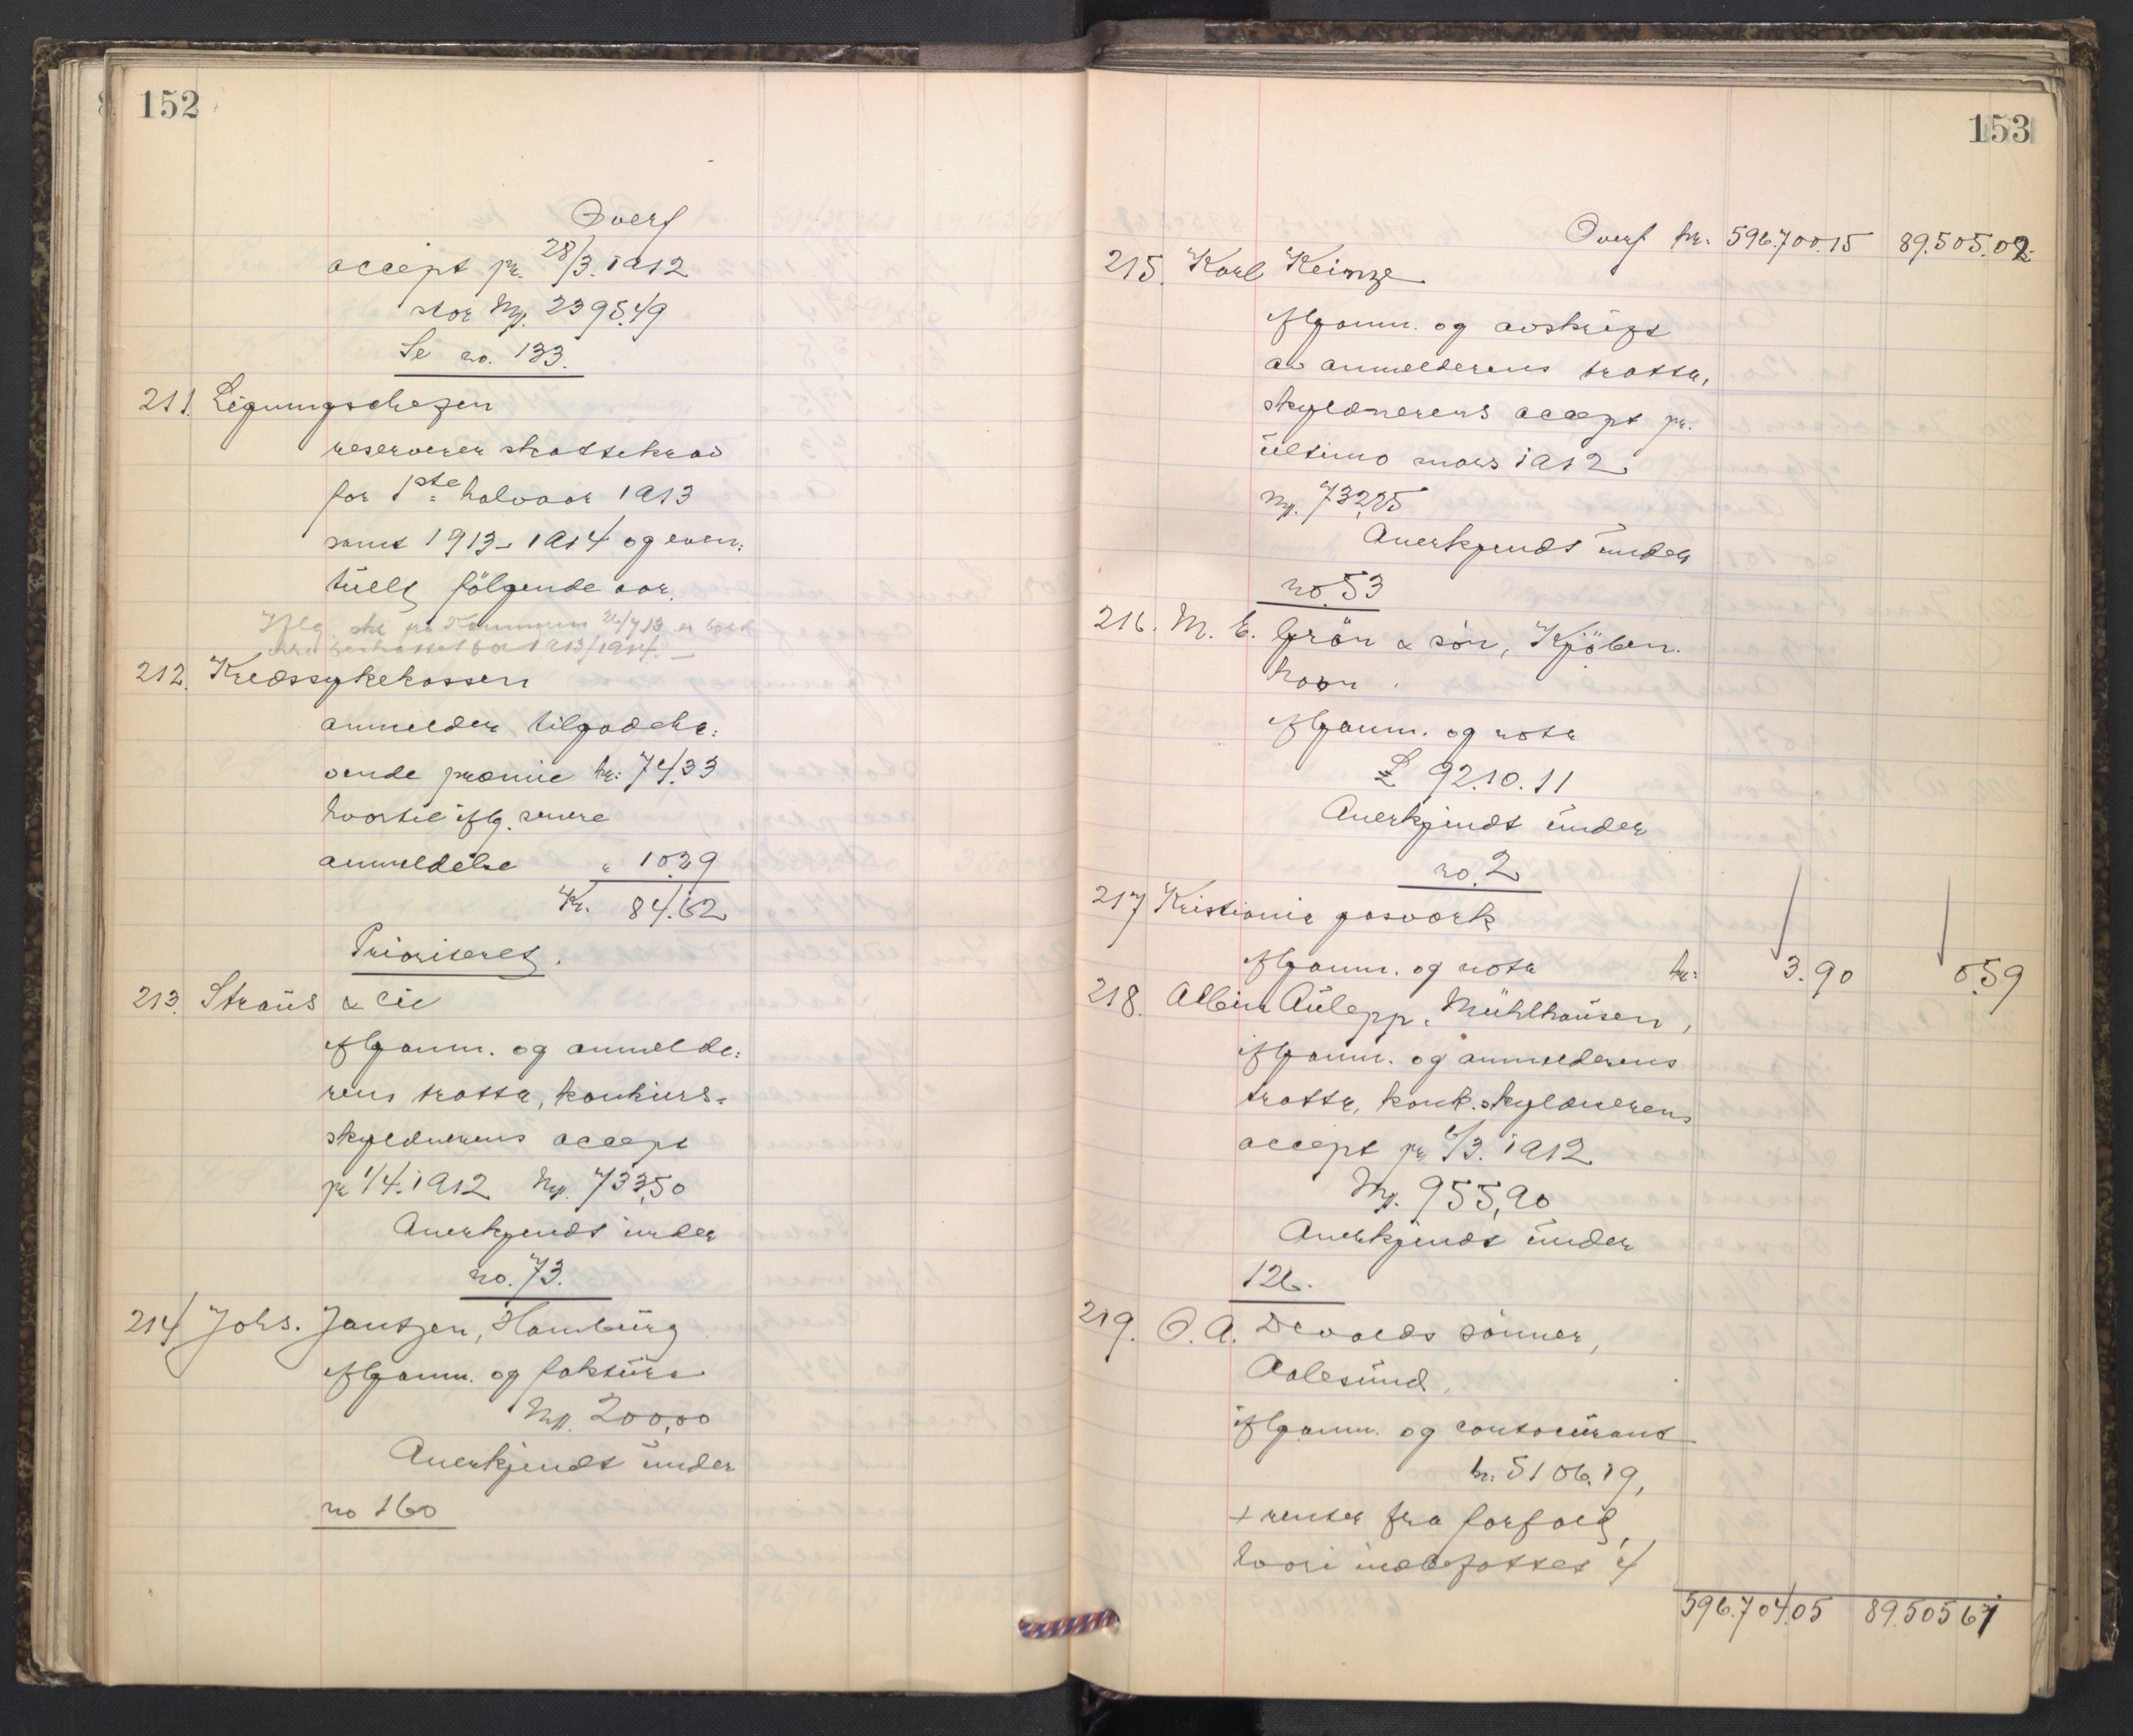 152
Overf
accept pr. 28/3. 1912
stor Mk. 2395.49
Se no. 133.
211. Ligningschefen
reserverer skattekrav
for 1ste halvaar 1913
samt 1913-1914 og even:
tuelt følgende aar.
Iflg. fra 26/4 13 er
1913/1914. —
212. Kredssykekassen
anmelder tilgodeha:
vende præmie kr: 74.33
hvortil iflg. senere
anmeldelse " 10.29
Kr. 84.62
Prioriteret.
213. Straus & Cie
iflg anm. og anmelde:
rens tratta, konkurs-
skyldnerens accept
pr 1/4. 1912 Mk. 733,50
Anerkjendt under
no. 73.
214 Johs. Jantzen, Hamburg
iflg anm. og faktura
Mk. 2000,00
Anerkjendt under
no 160
153
Overf kr. 596.700.15 89.505.02
215. Karl Keinze
iflg anm. og avskrift
av anmelderens tratta,
skyldnerens accept pr.
ultimo mars 1912
Mk. 732,25
Anerkjendt under
no. 53
216. M. E. Grøn & søn, Kjøben-
havn.
iflg anm. og nota
£ 92.10.11
Anerkjendt under
no. 2
217 Kristiania gasværk
iflg anm. og nota kr: 3.90 0.59
218. Albin Aulepp, Mühlhausen,
iflg anm. og anmelderens
tratta, konk.skyldnerens
accept pr 6/3. 1912
Mk. 955,90
Anerkjendt under
126.
219. O. A. Devolds sønner,
Aalesund,
iflg anm. og contocurant
kr. 5106.19,
+ renter fra forfald,
hvori indbefattet 4
596.704.05 89.505 61